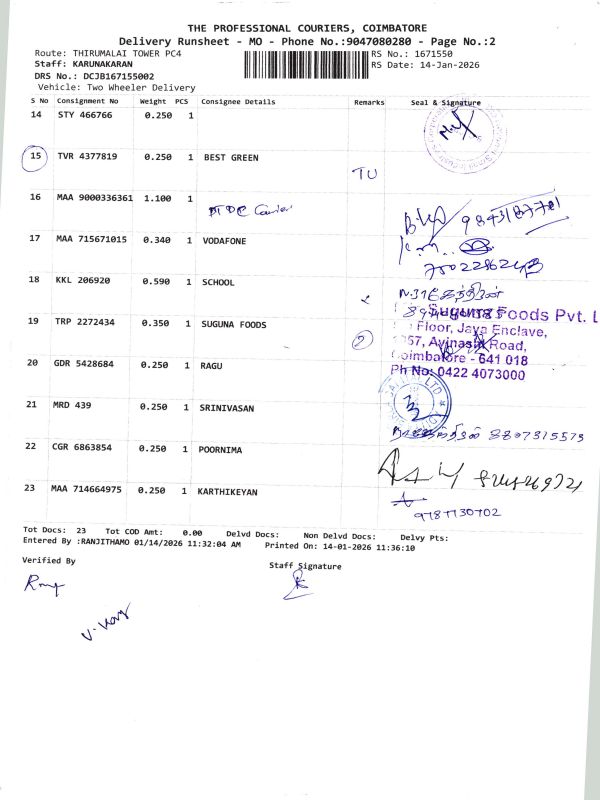 THE PROFESSIONAL COURIERS, COIMBATORE
Delivery Runsheet - MO - Phone No.:9047080280 - Page No.:2
Route: THIRUMALAI TOWER PC4
RS No.: 1671550
Staff: KARUNAKARAN
RS Date: 14-Jan-2026
DRS No.: DCJB167155002
Vehicle: Two Wheeler Delivery
S No Consignment No Weight PCS Consignee Details Remarks Seal & Signature
14 STY 466766 0.250 1
15 TVR 4377819 0.250 1 BEST GREEN
TU
16 MAA 9000336361 1.100 1
DTDC Courier
17 MAA 715671015 0.340 1 VODAFONE
18 KKL 206920 0.590 1 SCHOOL
19 TRP 2272434 0.350 1 SUGUNA FOODS
2
Suguna Foods Pvt. L
Floor, Jaya Enclave,
Avinashi Road,
Coimbatore - 641 018
Ph No: 0422 4073000
20 GDR 5428684 0.250 1 RAGU
21 MRD 439 0.250 1 SRINIVASAN
8807315573
22 CGR 6863854 0.250 1 POORNIMA
23 MAA 714664975 0.250 1 KARTHIKEYAN
Tot Docs: 23 Tot COD Amt: 0.00 Delvd Docs: Non Delvd Docs: Delvy Pts:
Entered By :RANJITHAMO 01/14/2026 11:32:04 AM Printed On: 14-01-2026 11:36:10
Verified By
Staff Signature